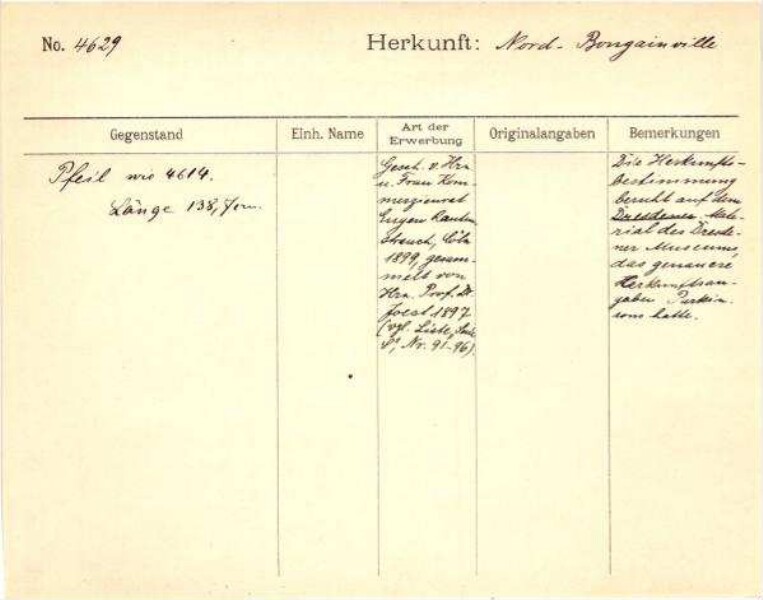 No. 4629
Herkunft: Nord-Bougainville
Gegenstand
Einh. Name
Art der
Erwerbung
Originalangaben
Bemerkungen
Pfeil wie 4614.
Länge 138,7 cm.
Gesch. v. Hrn
u. Frau Kom-
merzienrat
Eugen Rauten
strauch, Cöln
1899, gesam-
melt von
Hrn. Prof. Dr.
Joest 1897.
(vgl. Liste,
Nr. 91-96)
Die Herkunfts-
bestimmung
beruht auf dem
Dresdener Mate-
rial des Dresde-
ner Museums,
das genauere
Herkunftsan-
gaben Parkin-
sons hatte.